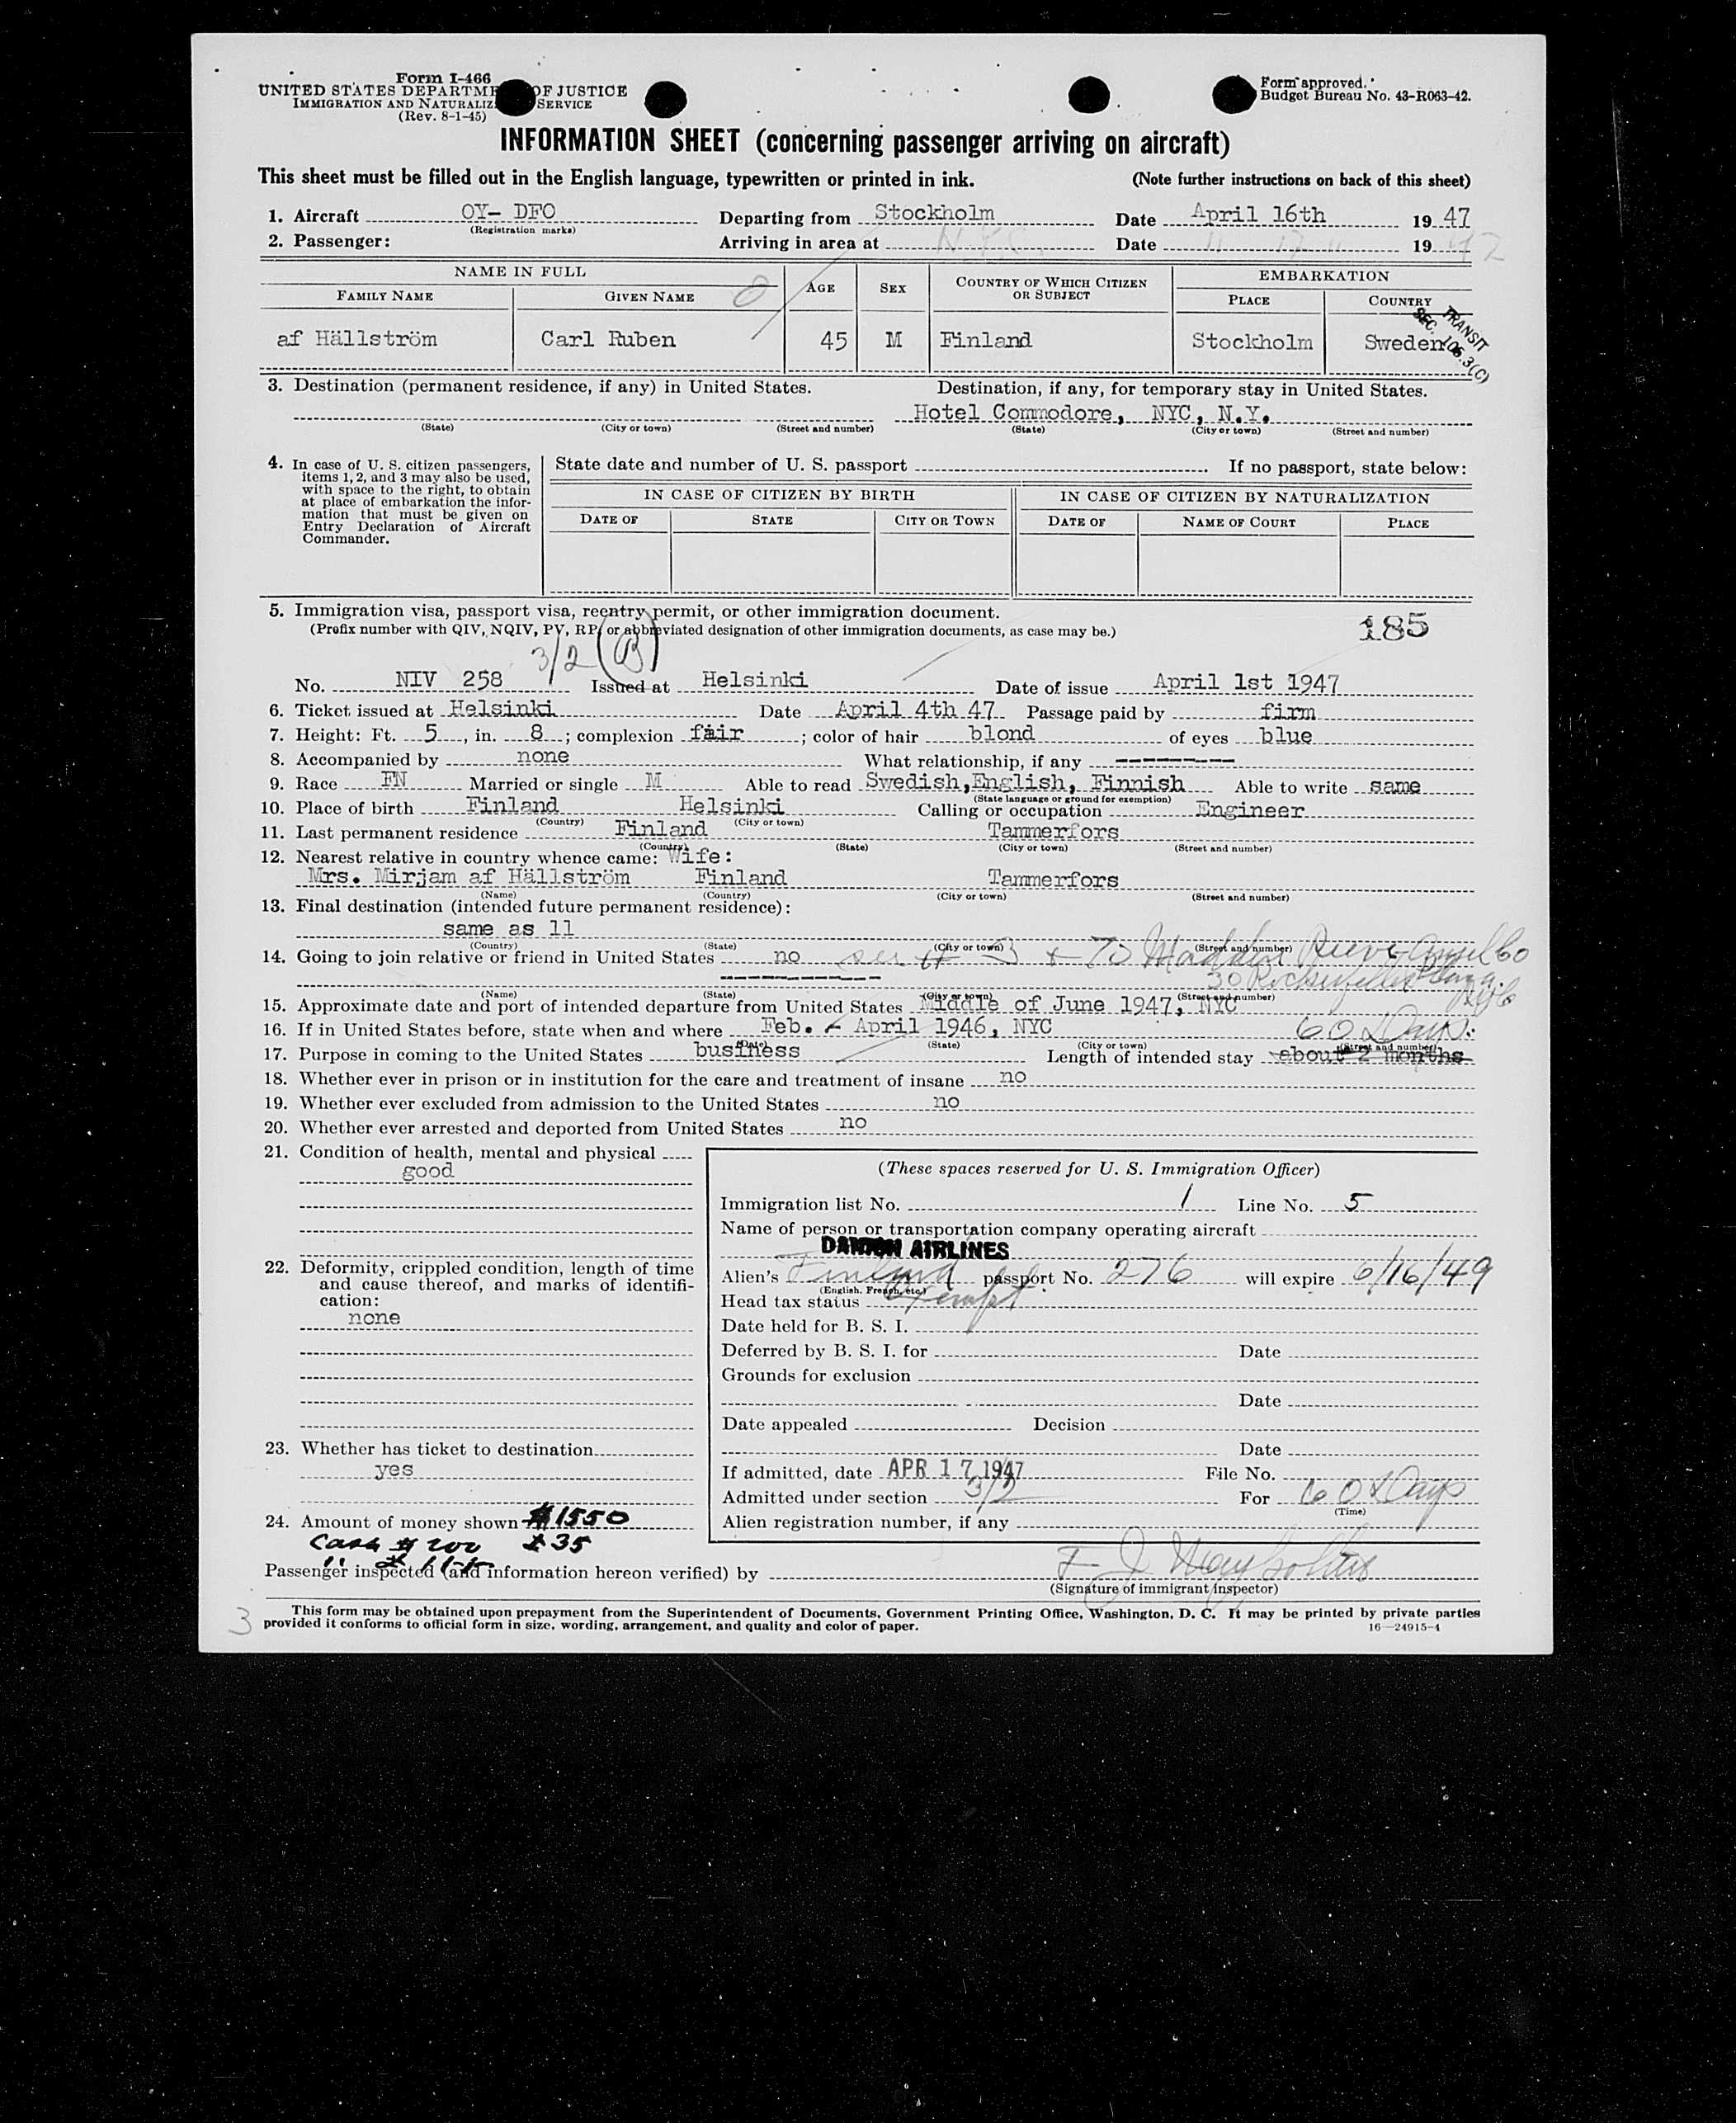 Form I-466
UNITED STATES DEPARTME OF JUSTICE
IMMIGRATION AND NATURALIZ SERVICE
(Rev. 8-1-45)
Form approved.
Budget Bureau No. 43-R063-42.
INFORMATION SHEET (concerning passenger arriving on aircraft)
This sheet must be filled out in the English language, typewritten or printed in ink. (Note further instructions on back of this sheet)
1. Aircraft OY- DFO Departing from Stockholm Date April 16th 19 47
(Registration marks)
2. Passenger: Arriving in area at N.Y.C. Date " 17 " 19 47
NAME IN FULL AGE SEX COUNTRY OF WHICH CITIZEN OR SUBJECT EMBARKATION
FAMILY NAME GIVEN NAME PLACE COUNTRY
af Hällström Carl Ruben 45 M Finland Stockholm Sweden
TRANSIT
SEC. 105.3(C)
3. Destination (permanent residence, if any) in United States. Destination, if any, for temporary stay in United States.
Hotel Commodore, NYC, N.Y.
(State) (City or town) (Street and number) (State) (City or town) (Street and number)
4. In case of U. S. citizen passengers, items 1, 2, and 3 may also be used, with space to the right, to obtain at place of embarkation the information that must be given on Entry Declaration of Aircraft Commander.
State date and number of U. S. passport . If no passport, state below:
IN CASE OF CITIZEN BY BIRTH IN CASE OF CITIZEN BY NATURALIZATION
DATE OF STATE CITY OR TOWN DATE OF NAME OF COURT PLACE
5. Immigration visa, passport visa, reentry permit, or other immigration document.
(Prefix number with QIV, NQIV, PV, RP, or abbreviated designation of other immigration documents, as case may be.)
185
3/2 (B)
No. NIV 258 Issued at Helsinki Date of issue April 1st 1947
6. Ticket issued at Helsinki Date April 4th 47 Passage paid by firm
7. Height: Ft. 5, in. 8; complexion fair; color of hair blond of eyes blue
8. Accompanied by none What relationship, if any ----------
9. Race FN Married or single M Able to read Swedish, English, Finnish Able to write same
(State language or ground for exemption)
10. Place of birth Finland Helsinki Calling or occupation Engineer
(Country) (City or town)
11. Last permanent residence Finland Tammerfors
(Country) (State) (City or town) (Street and number)
12. Nearest relative in country whence came: Wife:
Mrs. Mirjam af Hällström Finland Tammerfors
(Name) (Country) (City or town) (Street and number)
13. Final destination (intended future permanent residence):
same as 11
(Country) (State) (City or town) (Street and number)
14. Going to join relative or friend in United States no see # 3 + To Madden
30 Rockefeller Plaza.
(Name) (State) (City or town) (Street and number)
15. Approximate date and port of intended departure from United States Middle of June 1947, NYC
16. If in United States before, state when and where Feb. - April 1946, NYC 60 Days
(Date) (State) (City or town) (Street and number)
17. Purpose in coming to the United States business Length of intended stay about 2 months
18. Whether ever in prison or in institution for the care and treatment of insane no
19. Whether ever excluded from admission to the United States no
20. Whether ever arrested and deported from United States no
21. Condition of health, mental and physical
good
(These spaces reserved for U. S. Immigration Officer)
Immigration list No. 1 Line No. 5
Name of person or transportation company operating aircraft
AIRLINES
22. Deformity, crippled condition, length of time and cause thereof, and marks of identification:
none
Alien's Finland passport No. 276 will expire 6/16/49
(English, French, etc.)
Head tax status Exempt
Date held for B. S. I.
Deferred by B. S. I. for Date
Grounds for exclusion
Date
Date appealed Decision
23. Whether has ticket to destination
yes
Date
If admitted, date APR 17 1947 File No.
Admitted under section 3/2 For 60 Days
(Time)
24. Amount of money shown $1550
Cash $ 200 £ 35
Alien registration number, if any
Passenger inspected (and information hereon verified) by
(Signature of immigrant inspector)
3
This form may be obtained upon prepayment from the Superintendent of Documents, Government Printing Office, Washington, D. C. It may be printed by private parties
provided it conforms to official form in size, wording, arrangement, and quality and color of paper. 16—24915-4